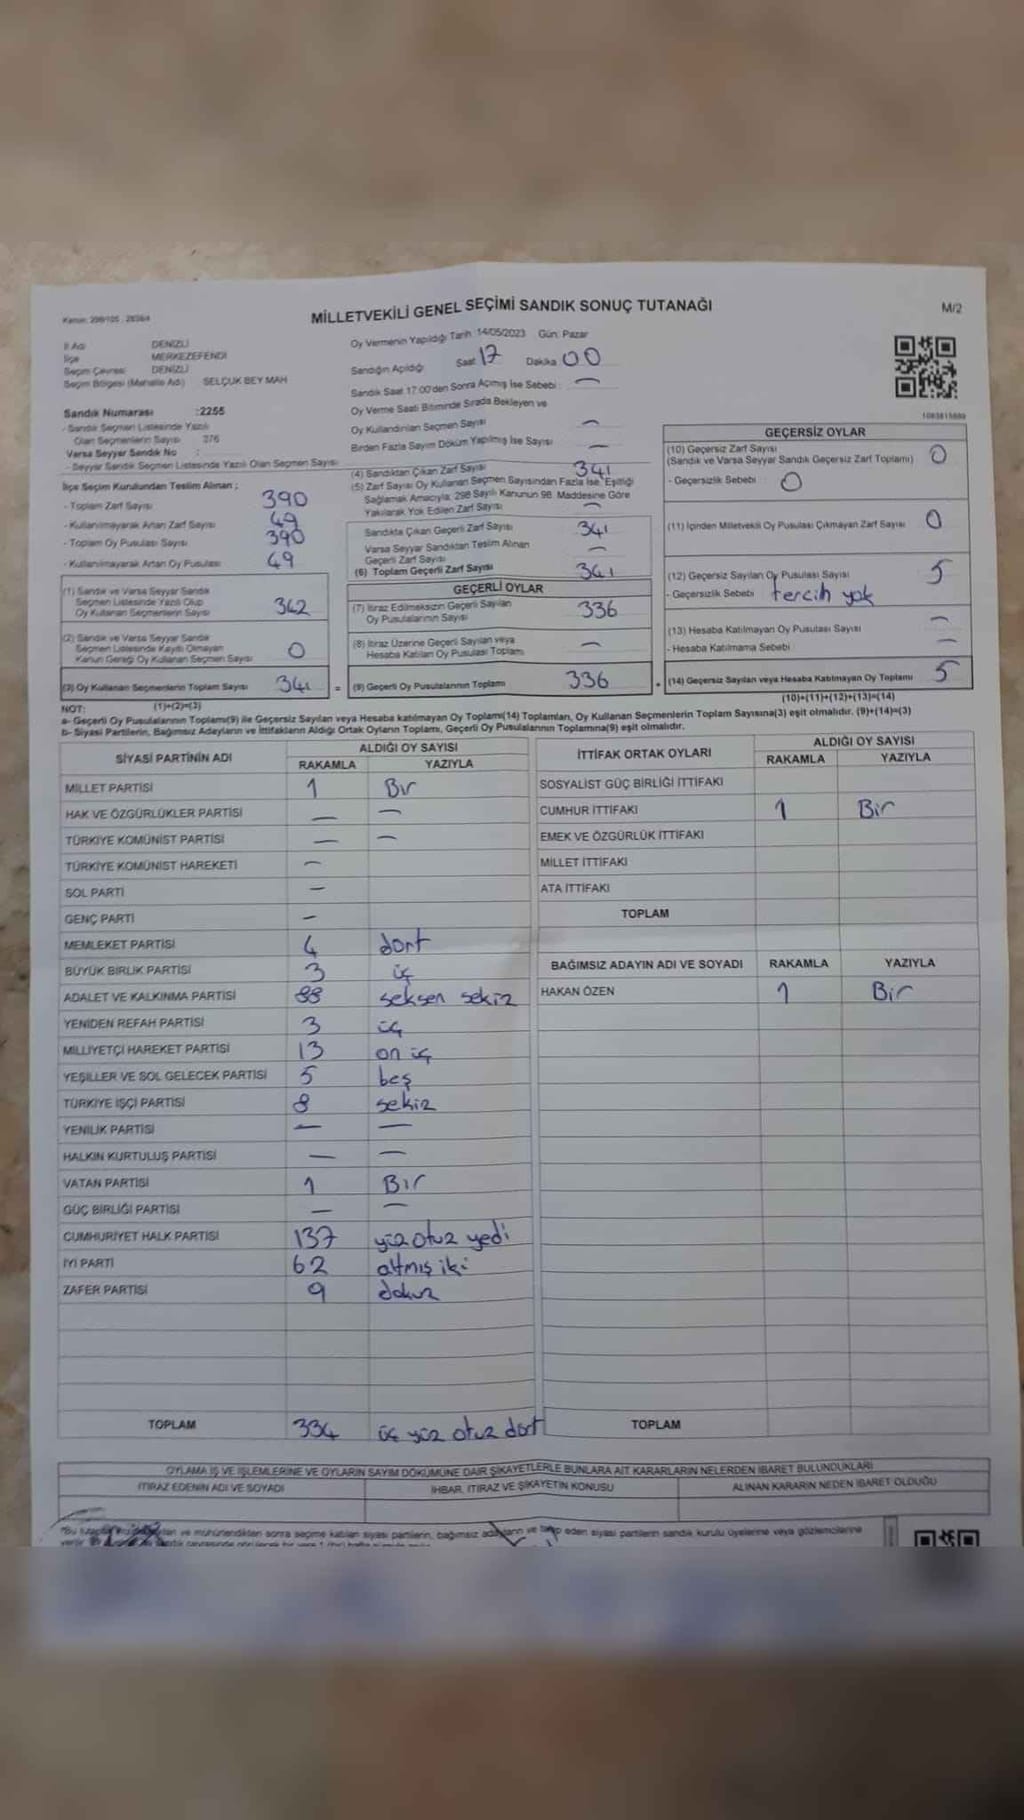 MİLLETVEKİLİ GENEL SEÇİMİ SANDIK SONUÇ TUTANAĞI
M/2
İl Adı DENİZLİ
İlçe MERKEZEFENDİ
Seçim Çevresi DENİZLİ
Seçim Bölgesi (Mahalle Adı) SELÇUK BEY MAH
Sandık Numarası :2255
- Sandık Seçmen Listesinde Yazılı
Olan Seçmenlerin Sayısı 376
Varsa Seyyar Sandık No :
- Seyyar Sandık Seçmen Listesinde Yazılı Olan Seçmen Sayısı
İlçe Seçim Kurulundan Teslim Alınan ;
- Toplam Zarf Sayısı 390
- Kullanılmayarak Artan Zarf Sayısı 49
- Toplam Oy Pusulası Sayısı 390
- Kullanılmayarak Artan Oy Pusulası 49
(1) Sandık ve Varsa Seyyar Sandık
Seçmen Listesinde Yazılı Olup
Oy Kullanan Seçmenlerin Sayısı 342
(2) Sandık ve Varsa Seyyar Sandık
Seçmen Listesinde Kayıtlı Olmayan
Kanun Gereği Oy Kullanan Seçmen Sayısı 0
(3) Oy Kullanan Seçmenlerin Toplam Sayısı 341
Oy Vermenin Yapıldığı Tarih 14/05/2023 Gün: Pazar
Sandığın Açıldığı Saat 17 Dakika 00
Sandık Saat 17:00'den Sonra Açılmış İse Sebebi : —
Oy Verme Saati Bitiminde Sırada Bekleyen ve
Oy Kullandırılan Seçmen Sayısı —
Birden Fazla Sayım Döküm Yapılmış İse Sayısı —
(4) Sandıktan Çıkan Zarf Sayısı 341
(5) Zarf Sayısı Oy Kullanan Seçmen Sayısından Fazla İse, Eşitliği
Sağlamak Amacıyla; 298 Sayılı Kanunun 98. Maddesine Göre
Yakılarak Yok Edilen Zarf Sayısı —
Sandıkta Çıkan Geçerli Zarf Sayısı 341
Varsa Seyyar Sandıktan Teslim Alınan
Geçerli Zarf Sayısı —
(6) Toplam Geçerli Zarf Sayısı 341
GEÇERLİ OYLAR
(7) İtiraz Edilmeksizin Geçerli Sayılan
Oy Pusulalarının Sayısı 336
(8) İtiraz Üzerine Geçerli Sayılan veya
Hesaba Katılan Oy Pusulası Toplamı —
= (9) Geçerli Oy Pusulalarının Toplamı 336
1083815889
GEÇERSİZ OYLAR
(10) Geçersiz Zarf Sayısı 0
(Sandık ve Varsa Seyyar Sandık Geçersiz Zarf Toplamı)
- Geçersizlik Sebebi : 0
(11) İçinden Milletvekili Oy Pusulası Çıkmayan Zarf Sayısı 0
(12) Geçersiz Sayılan Oy Pusulası Sayısı 5
- Geçersizlik Sebebi : tercih yok
(13) Hesaba Katılmayan Oy Pusulası Sayısı —
- Hesaba Katılmama Sebebi : —
+ (14) Geçersiz Sayılan veya Hesaba Katılmayan Oy Toplamı 5
NOT: (1)+(2)=(3)
(10)+(11)+(12)+(13)=(14)
a- Geçerli Oy Pusulalarının Toplamı(9) ile Geçersiz Sayılan veya Hesaba katılmayan Oy Toplamı(14) Toplamları, Oy Kullanan Seçmenlerin Toplam Sayısına(3) eşit olmalıdır. (9)+(14)=(3)
b- Siyasi Partilerin, Bağımsız Adayların ve İttifakların Aldığı Ortak Oyların Toplamı, Geçerli Oy Pusulalarının Toplamına(9) eşit olmalıdır.
SİYASİ PARTİNİN ADI ALDIĞI OY SAYISI
RAKAMLA YAZIYLA
MİLLET PARTİSİ 1 Bir
HAK VE ÖZGÜRLÜKLER PARTİSİ — —
TÜRKİYE KOMÜNİST PARTİSİ — —
TÜRKİYE KOMÜNİST HAREKETİ —
SOL PARTİ —
GENÇ PARTİ —
MEMLEKET PARTİSİ 4 dört
BÜYÜK BİRLİK PARTİSİ 3 üç
ADALET VE KALKINMA PARTİSİ 88 seksen sekiz
YENİDEN REFAH PARTİSİ 3 üç
MİLLİYETÇİ HAREKET PARTİSİ 13 on üç
YEŞİLLER VE SOL GELECEK PARTİSİ 5 beş
TÜRKİYE İŞÇİ PARTİSİ 8 sekiz
YENİLİK PARTİSİ — —
HALKIN KURTULUŞ PARTİSİ — —
VATAN PARTİSİ 1 Bir
GÜÇ BİRLİĞİ PARTİSİ — —
CUMHURİYET HALK PARTİSİ 137 yüz otuz yedi
İYİ PARTİ 62 altmış iki
ZAFER PARTİSİ 9 dokuz
TOPLAM 334 üç yüz otuz dört
İTTİFAK ORTAK OYLARI ALDIĞI OY SAYISI
RAKAMLA YAZIYLA
SOSYALİST GÜÇ BİRLİĞİ İTTİFAKI
CUMHUR İTTİFAKI 1 Bir
EMEK VE ÖZGÜRLÜK İTTİFAKI
MİLLET İTTİFAKI
ATA İTTİFAKI
TOPLAM
BAĞIMSIZ ADAYIN ADI VE SOYADI RAKAMLA YAZIYLA
HAKAN ÖZEN 1 Bir
TOPLAM
OYLAMA İŞ VE İŞLEMLERİNE VE OYLARIN SAYIM DÖKÜMÜNE DAİR ŞİKAYETLERLE BUNLARA AİT KARARLARIN NELERDEN İBARET BULUNDUKLARI
İTİRAZ EDENİN ADI VE SOYADI İHBAR, İTİRAZ VE ŞİKAYETİN KONUSU ALINAN KARARIN NEDEN İBARET OLDUĞU
ve mühürlendikten sonra seçime katılan siyasi partilerin, bağımsız adayların ve talep eden siyasi partilerin sandık kurulu üyelerine veya gözlemcilerine